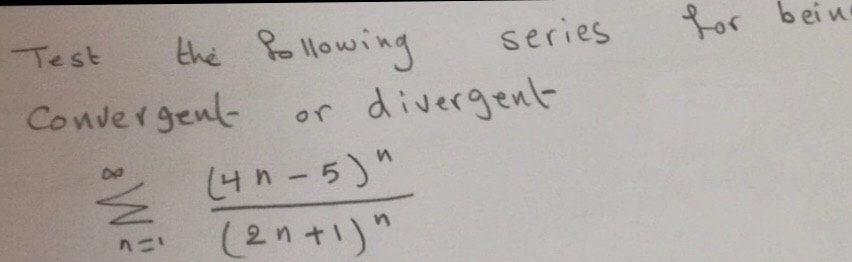 Test the following series for bein
Convergent or divergent
∞
Σ (4n-5)ⁿ / (2n+1)ⁿ
n=1